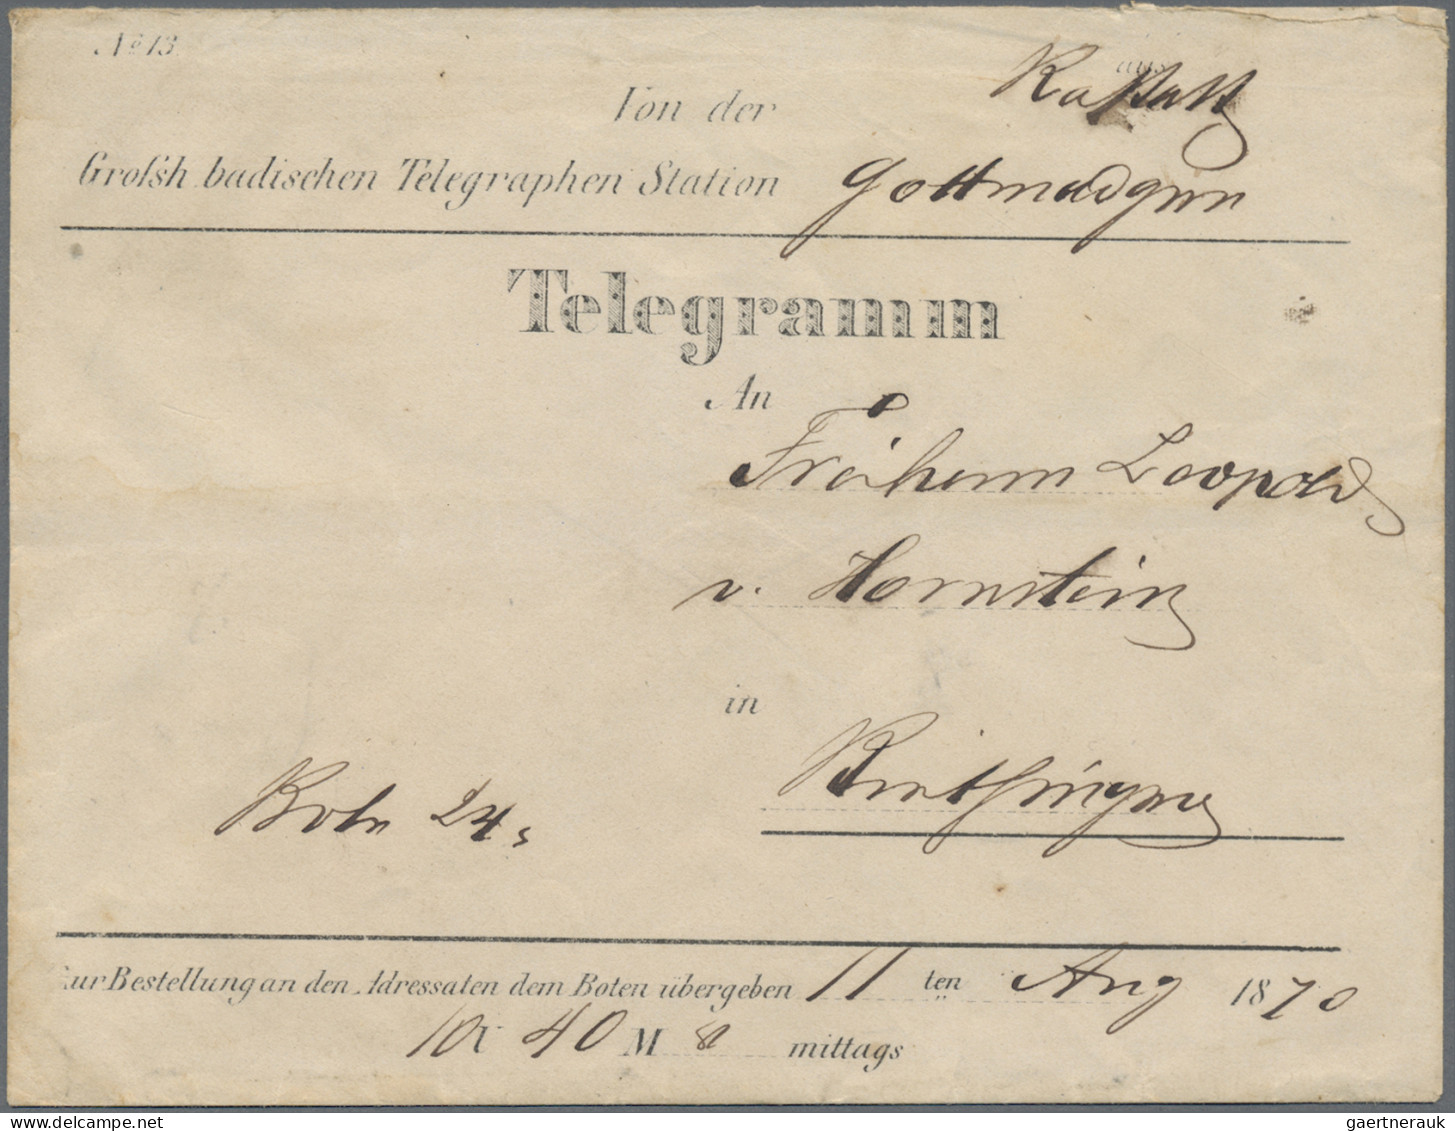 No 13.
aus
Rastatt
Von der
Grofsh. badischen Telegraphen Station Gottmadgen
Telegramm
An
Freiherrn Leopold
v. Hornstein
in
Bote 24
Zur Bestellung an den Adressaten dem Boten übergeben 11 ten Aug 1870
10 U 40 M mittags
gaertnerauk